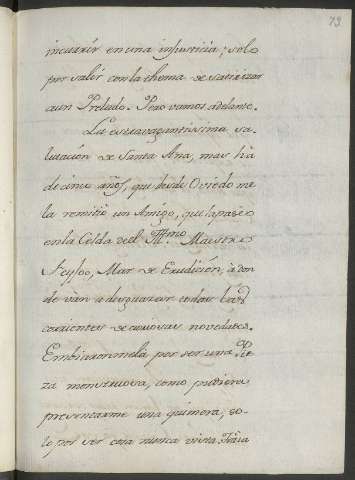 73
incurrir en una injusticia; solo
por salir con la thema de satirizar
a un Preludo. Pero vamos adelante.
La extravagantissima sa-
lutación de Santa Ana, mas hà
de cinco años, que desde Oviedo me
la remitiò un Amigo, que la pasco
en la Celda del Illmo. Maestro
Feyjoo, Mar de Erudicion, à don
de vàn à desaguazar todas las
corrientes de curiosas novedades.
Embiaronmela por ser una Pie
za monstruosa, como pudiera
presentarme una quimera, so-
lo por ser cosa nunca vista. Traia